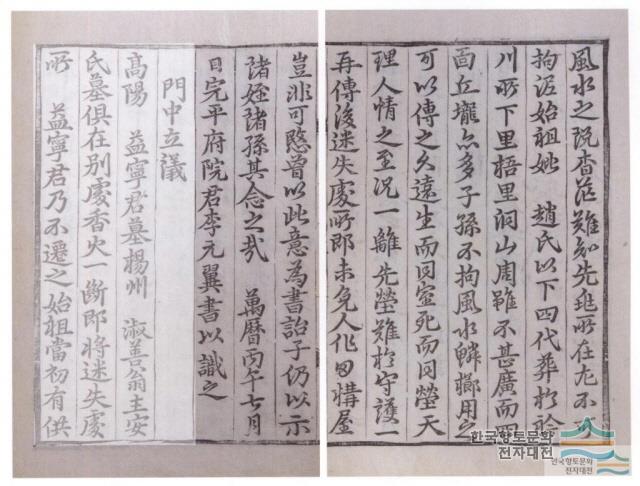 風水之說杳茫難知先兆所在尤不可
拘泥始祖妣 趙氏以下四代葬於衿
川所下里梧里洞山周雖不甚廣而四
面丘壠亦多子孫不拘風水鱗櫛用之
可以傳之久遠生而同室死而同塋天
理人情之至況一離先塋難於守護一
再傳後迷失處所即未免人作田構屋
豈非可愍曾以此意為書詒子仍以示
諸姪諸孫其念之哉 萬曆丙午七月
日完平府院君李元翼書以識之
門中立議
高陽 益寧君墓楊州 淑善翁主安
氏墓俱在別處香火一斷即將迷失處
所 益寧君乃不遷之 始祖當初有供
한국향토문화
전자대전
한국향토문화
전자대전